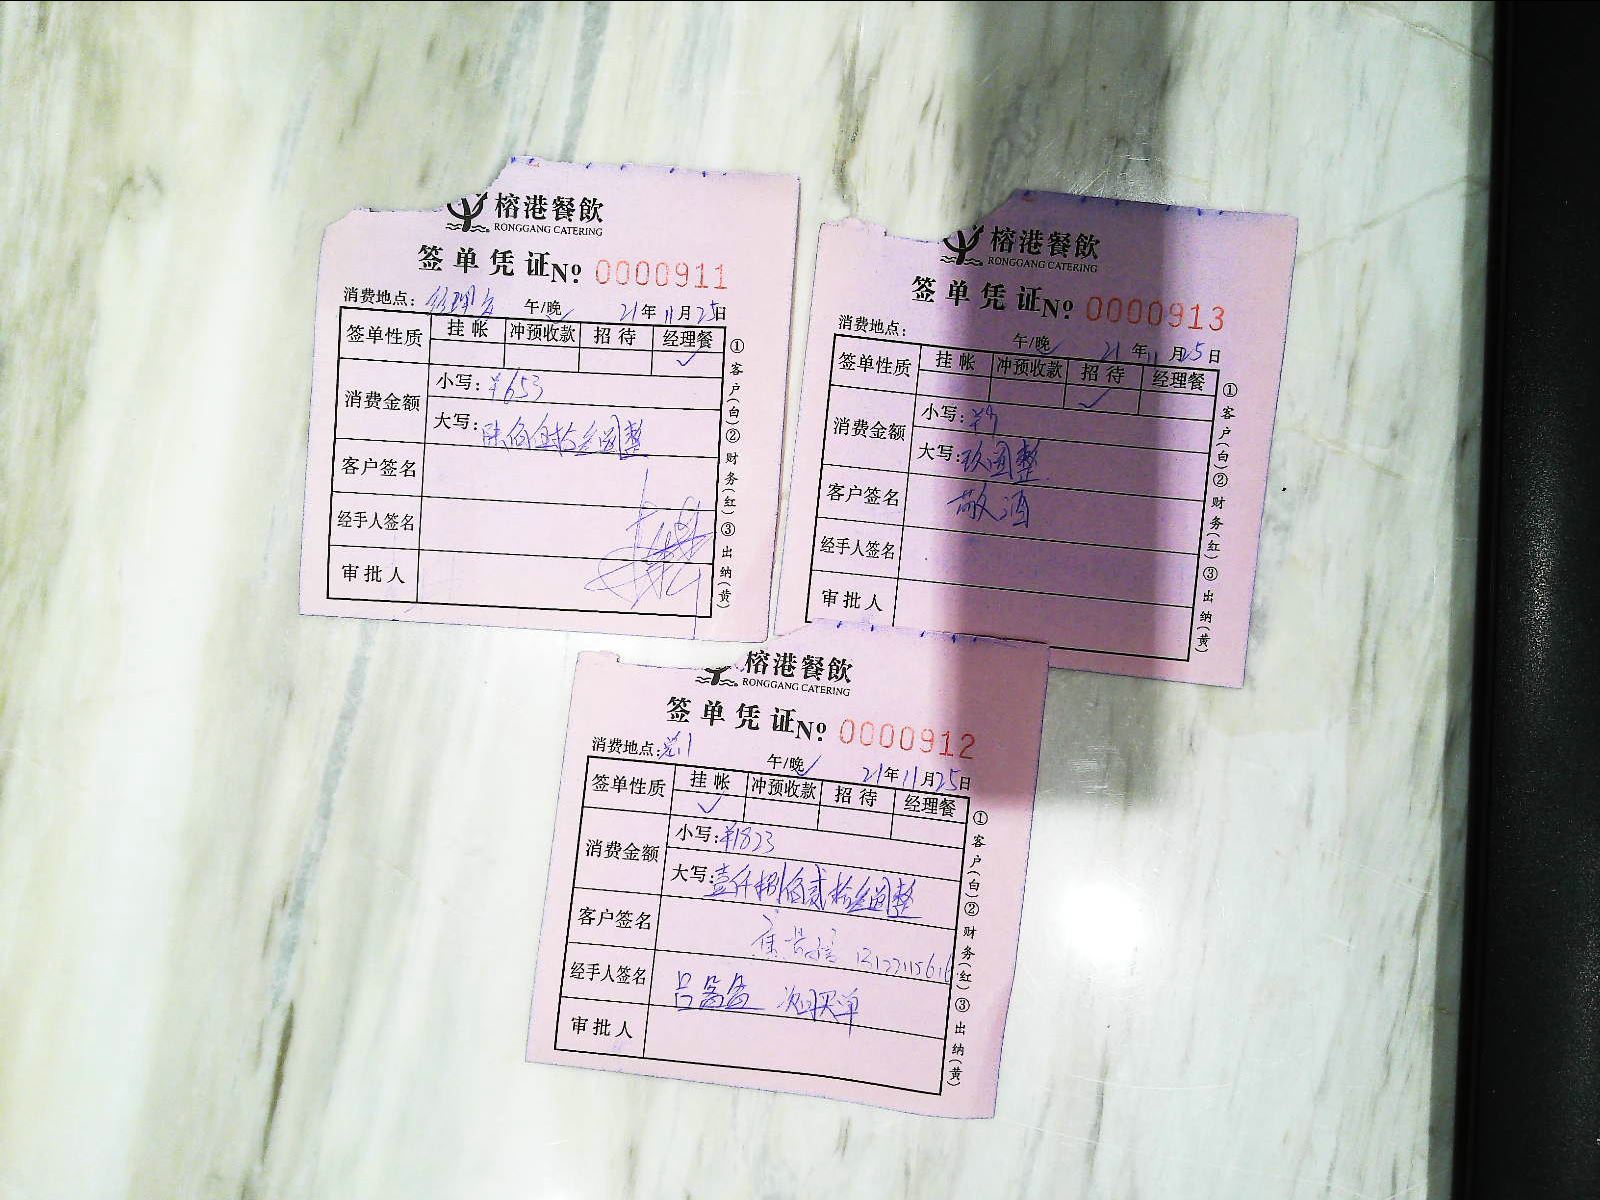 榕港餐飲
RONGGANG CATERING
签单凭证 Nº 0000911
消费地点: 经理房 午/晚✓ 21年11月25日
签单性质 挂帐 冲预收款 招待 经理餐
✓
消费金额 小写: ¥653
大写: 陆佰伍拾叁圆整
客户签名
经手人签名
审批人
①客户(白)②财务(红)③出纳(黄)
榕港餐飲
RONGGANG CATERING
签单凭证 Nº 0000913
消费地点: 午/晚✓ 21年11月25日
签单性质 挂帐 冲预收款 招待 经理餐
✓
消费金额 小写: ¥9
大写: 玖圆整
客户签名 敬酒
经手人签名
审批人
①客户(白)②财务(红)③出纳(黄)
榕港餐飲
RONGGANG CATERING
签单凭证 Nº 0000912
消费地点: 午/晚✓ 21年11月25日
签单性质 挂帐 冲预收款 招待 经理餐
✓
消费金额 小写: ¥1823
大写: 壹仟捌佰贰拾叁圆整
客户签名
经手人签名 次日买单
审批人
①客户(白)②财务(红)③出纳(黄)